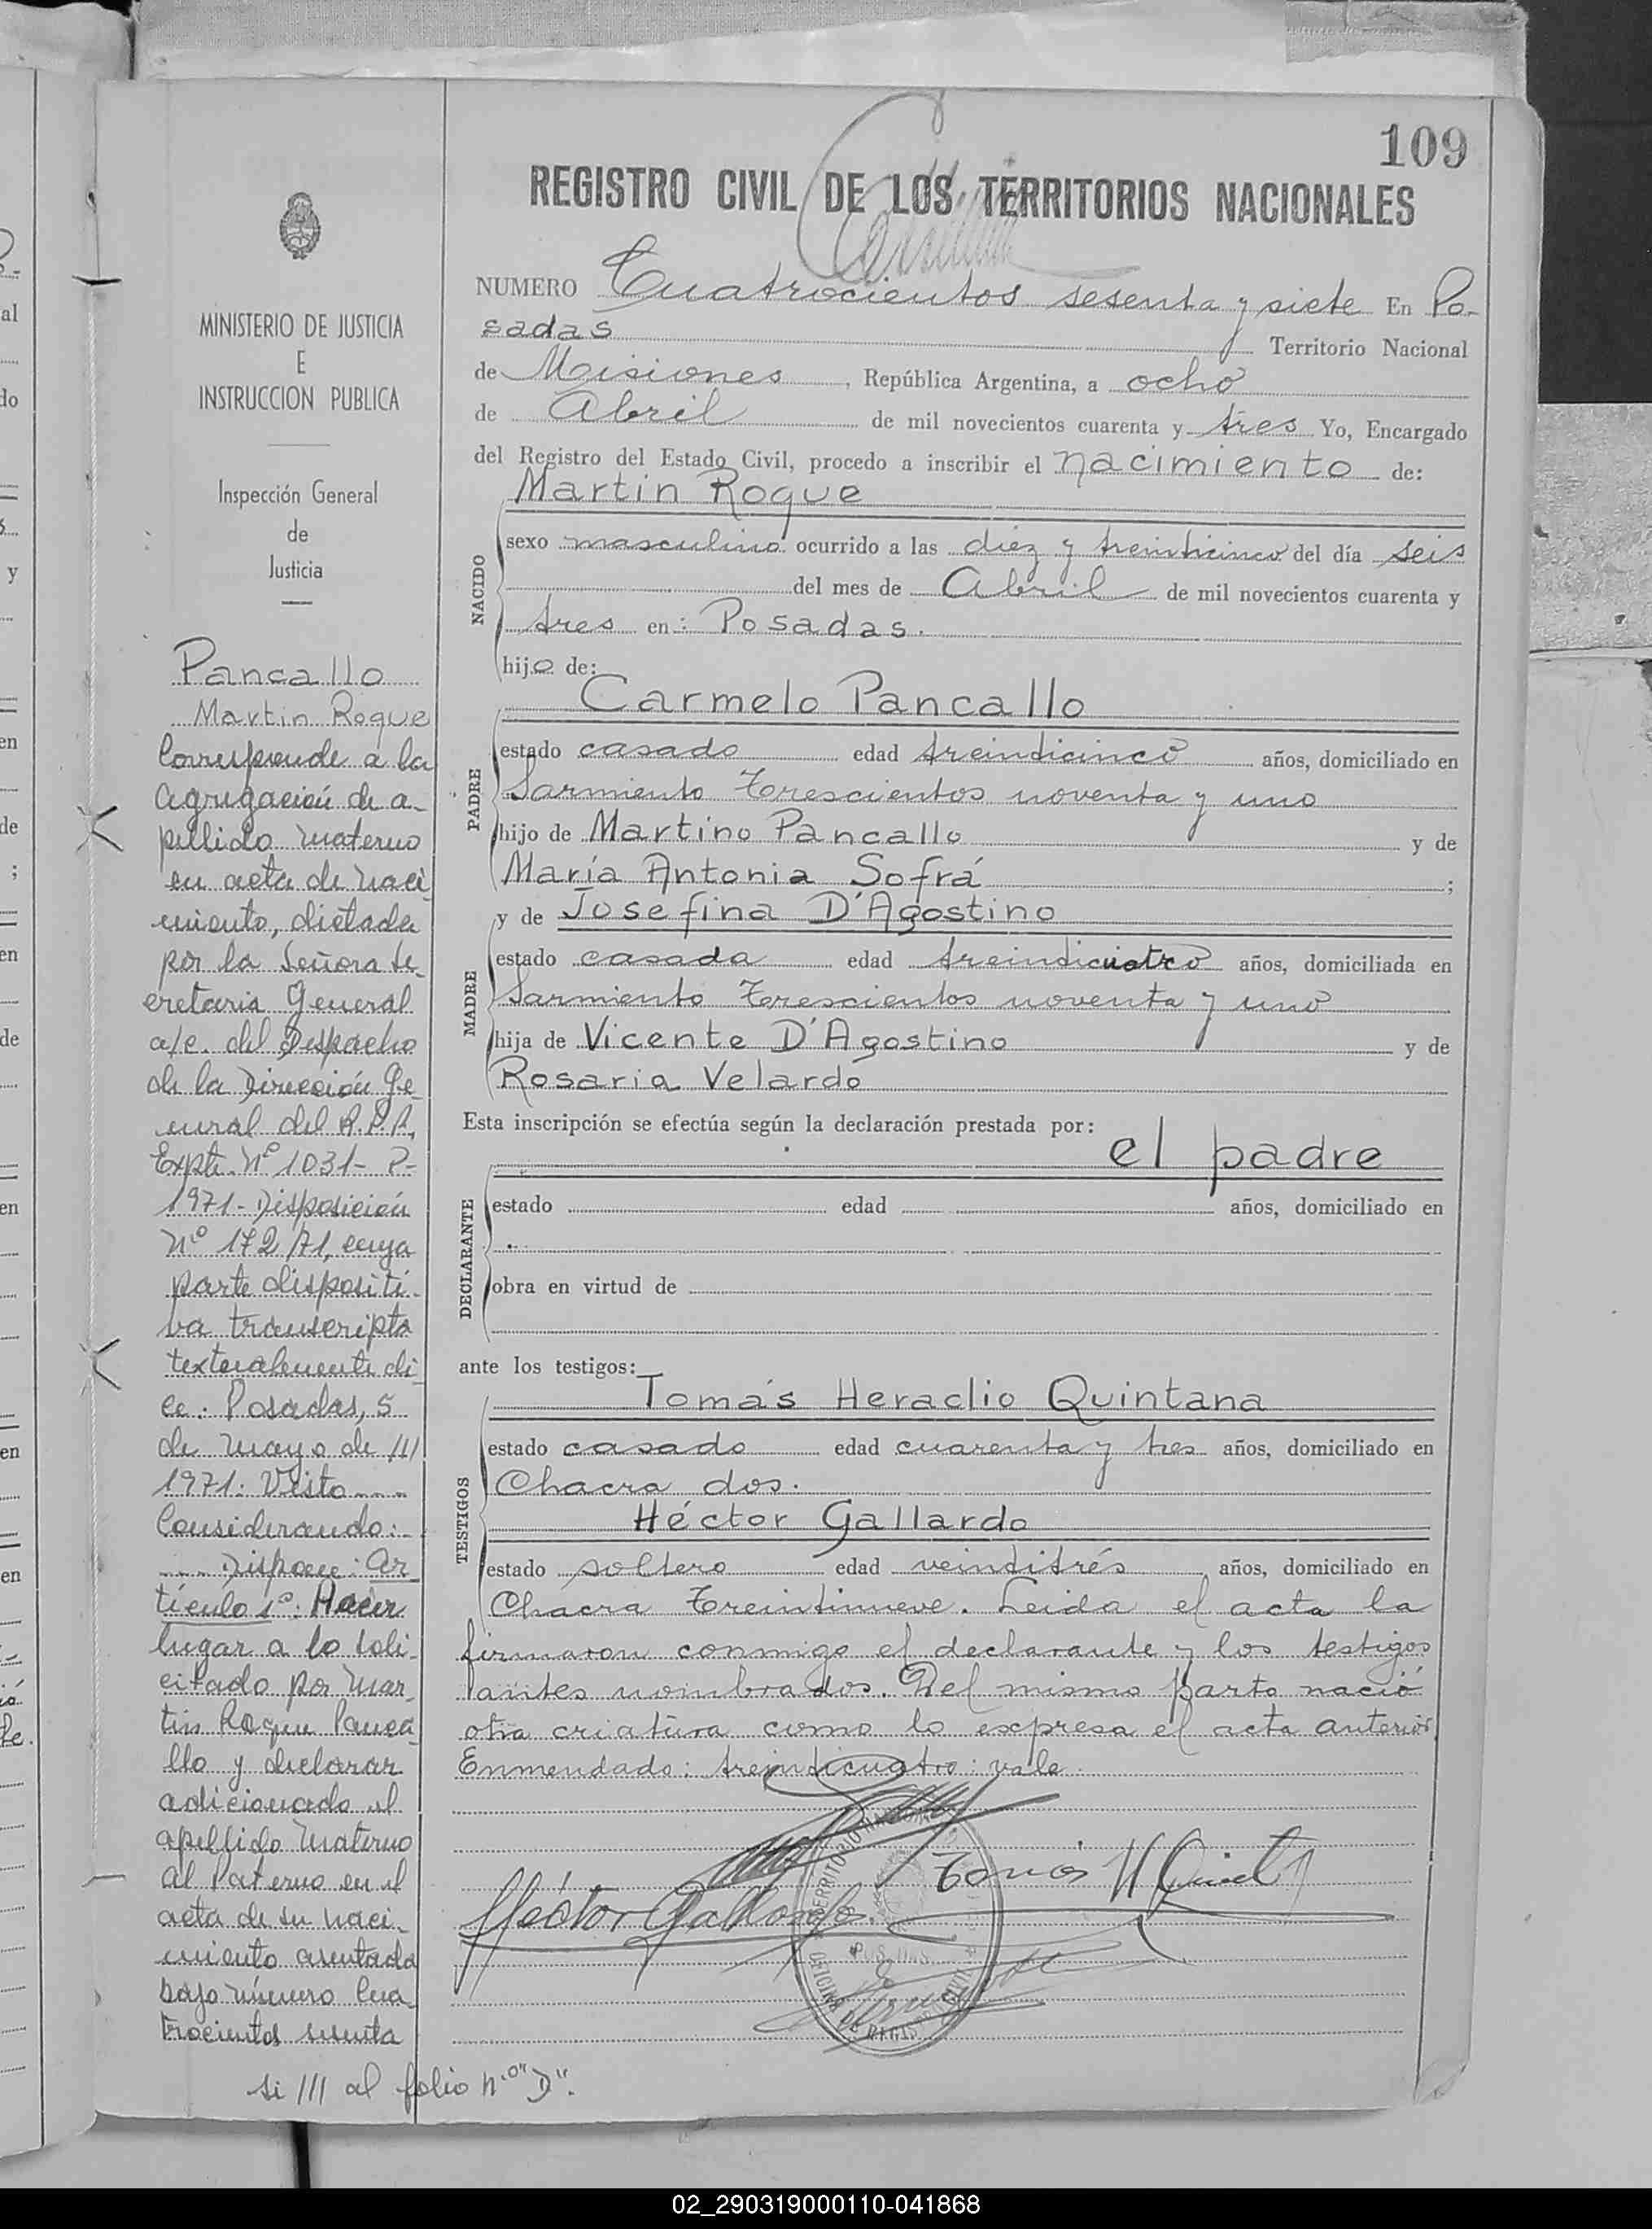 109
REGISTRO CIVIL DE LOS TERRITORIOS NACIONALES
NUMERO Cuatrocientos sesenta y siete En Po-
sadas Territorio Nacional
de Misiones, República Argentina, a ocho
de Abril de mil novecientos cuarenta y tres Yo, Encargado
del Registro del Estado Civil, procedo a inscribir el nacimiento de:
NACIDO
Martin Roque
sexo masculino ocurrido a las diez y treinticinco del día seis
del mes de Abril de mil novecientos cuarenta y
tres en: Posadas.
hijo de:
PADRE
Carmelo Pancallo
estado casado edad treindicinco años, domiciliado en
Sarmiento Trescientos noventa y uno
hijo de Martino Pancallo y de
María Antonia Sofrá ;
MADRE
y de Josefina D'Agostino
estado casada edad treindicuatro años, domiciliada en
Sarmiento Trescientos noventa y uno
hija de Vicente D'Agostino y de
Rosaria Velardo
Esta inscripción se efectúa según la declaración prestada por:
el padre
DECLARANTE
estado edad años, domiciliado en
obra en virtud de
ante los testigos:
TESTIGOS
Tomás Heraclio Quintana
estado casado edad cuarenta y tres años, domiciliado en
Chacra dos.
Héctor Gallardo
estado soltero edad veinditrés años, domiciliado en
Chacra Treintinueve. Leida el acta la
firmaron conmigo el declarante y los testigos
antes nombrados. Del mismo parto nació
otra criatura como lo expresa el acta anterior
Enmendado: treindicuatro: vale
Tomás H Quint
Héctor Gallardo
MINISTERIO DE JUSTICIA
E
INSTRUCCION PUBLICA
Inspección General
de
Justicia
Pancallo
Martin Roque
Corresponde a la
agregación de a-
pellido materno
en acta de naci
miento, dictada
por la Señora Se-
cretaria General
a/c. del Despacho
de la Dirección Ge
neral del R.P.P,
Expte. Nº 1031- P-
1971- Disposición
Nº 172/71, cuya
parte dispositi-
va transcripta
textualmente di
ce: Posadas, 5
de Mayo de ///
1971: Visto ----
Considerando: -
---- Dispone: Ar
tículo 1º: Hacer
lugar a lo soli-
citado por Mar-
tin Roque Panca
llo y declarar
adicionado el
apellido Materno
al Paterno en el
acta de su naci-
miento asentada
bajo número Cua-
trocientos sesenta
si /// al folio Nº "D".
02_290319000110-041868